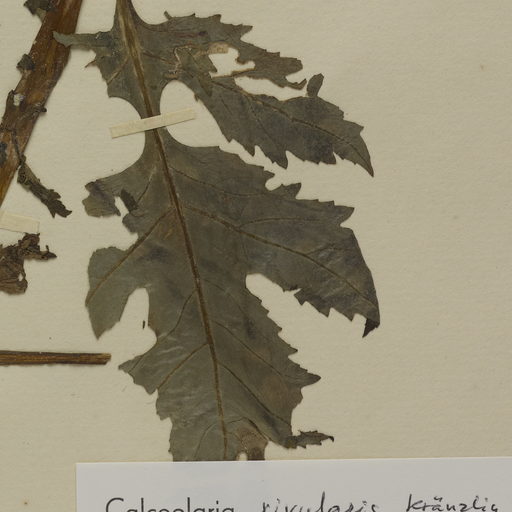 Calceolaria rivularis Kränzlin